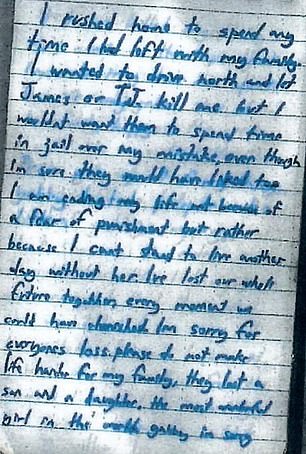 I rushed home to spend any
time I had left with my family.
I wanted to drive north and let
James or TJ kill me but I
wouldnt want them to spend time
in jail over my mistake, even though
Im sure they would have liked too
I am ending my life not because of
a fear of punishment but rather
because I cant stand to live another
day without her. Ive lost our whole
future together, every moment we
could have cherished Im sorry for
everyones loss. please do not make
life harder for my family, they lost a
son and a daughter. the most wonderful
girl in the world gabby im sorry